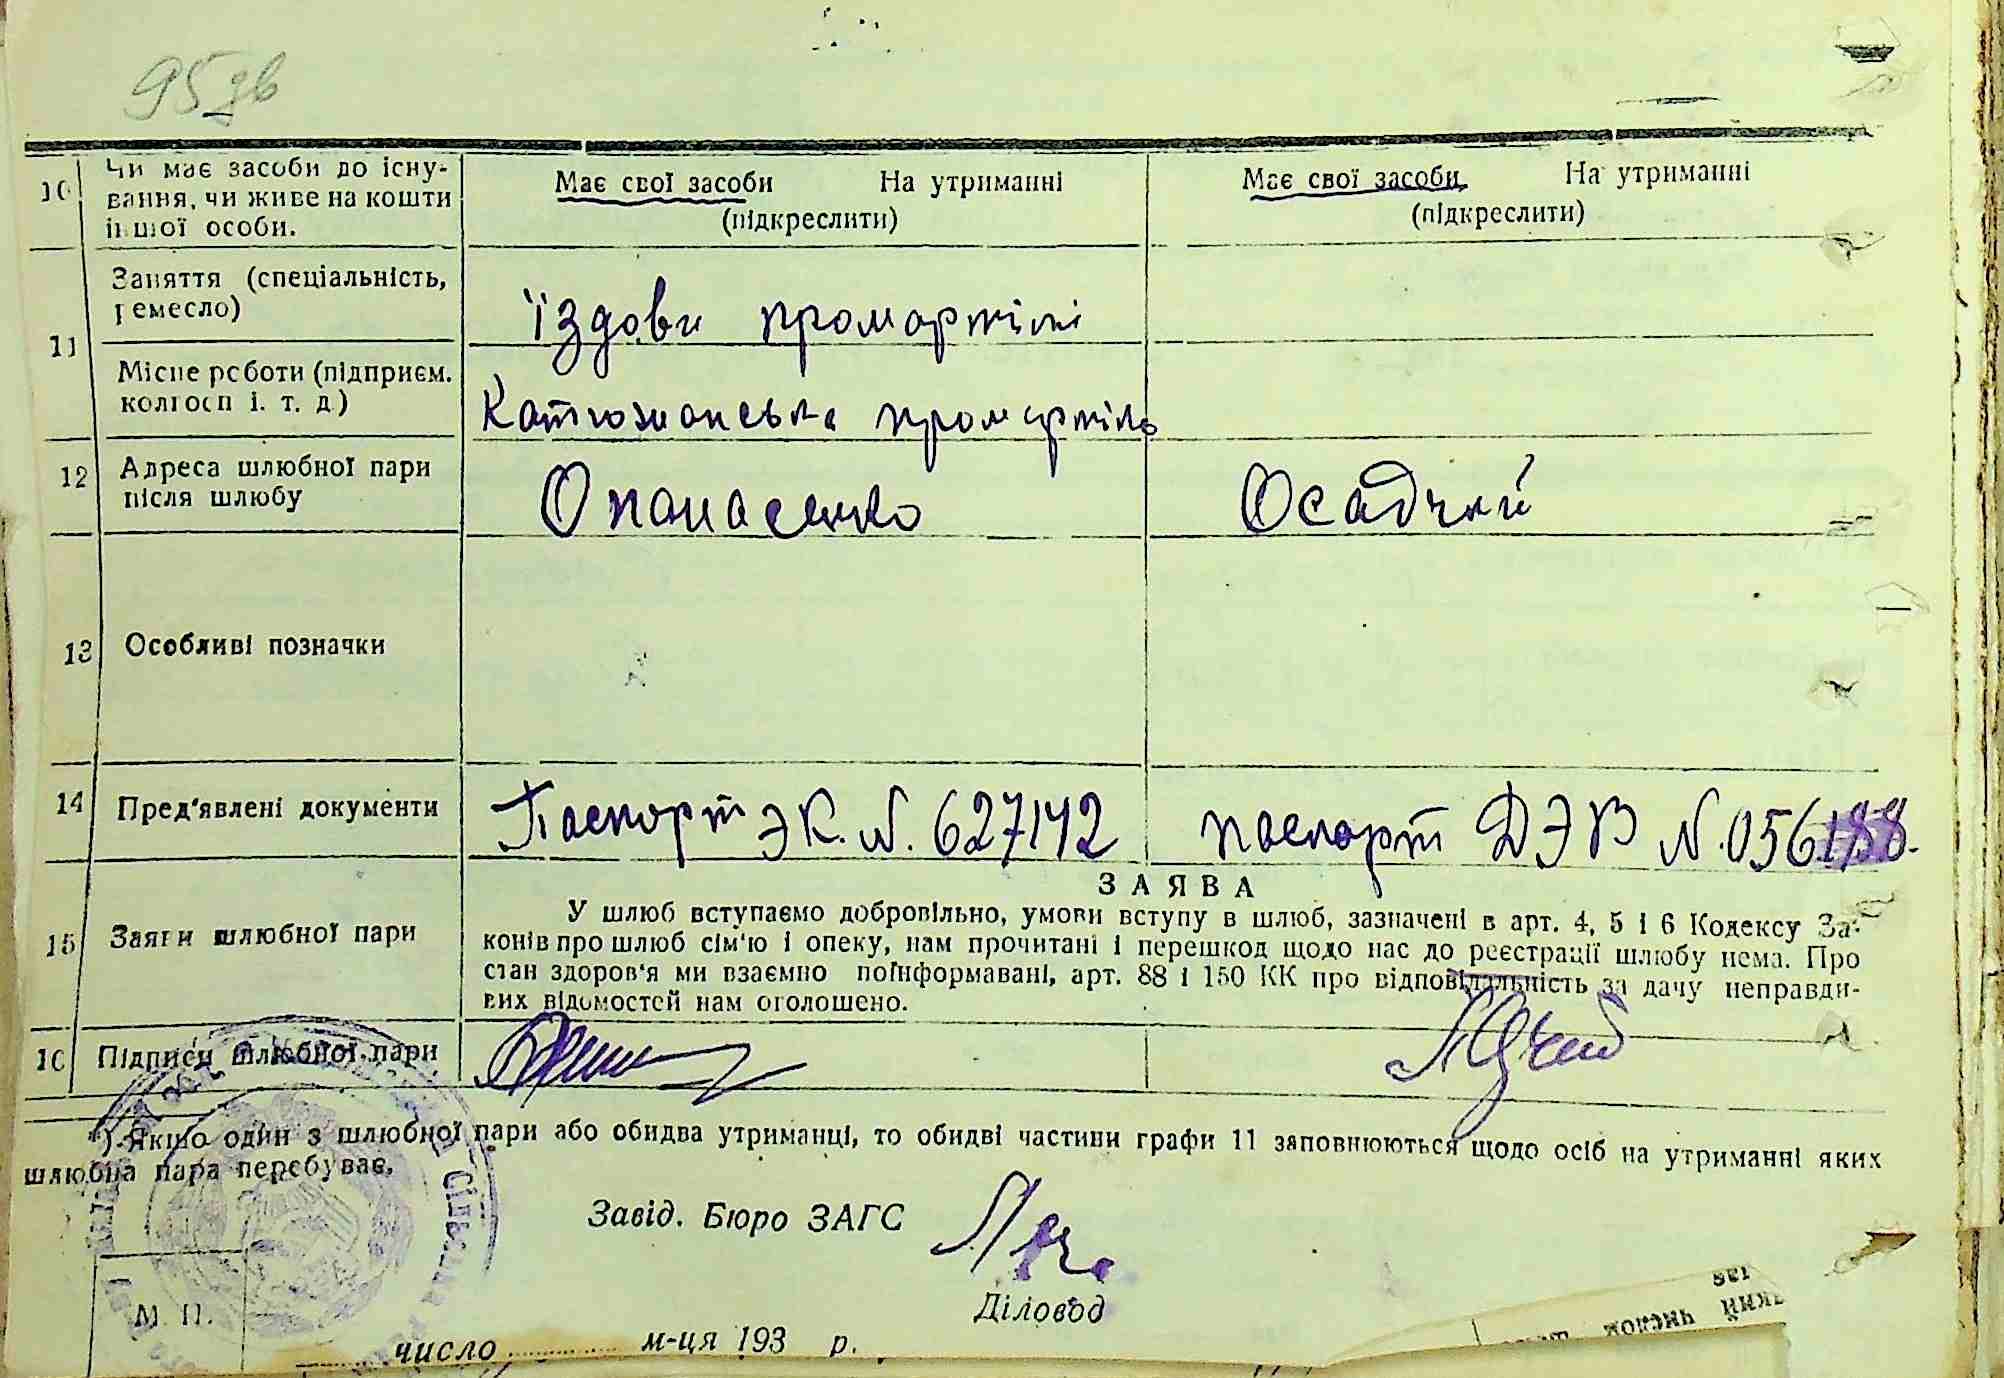 95 зв
10 Чи має засоби до існу-
вання, чи живе на кошти
іншої особи.
Має свої засоби На утриманні
(підкреслити)
Має свої засоби На утриманні
(підкреслити)
11 Заняття (спеціальність,
ремесло)
їздови промартілі
Місце роботи (підприєм.
колгосп і. т. д.)
Катюжанська промартіль
12 Адреса шлюбної пари
після шлюбу
Опанасенко
Осадчий
13 Особливі позначки
14 Пред'явлені документи
Паспорт ЭК. N. 627142
паспорт ДЭВ N. 056188.
ЗАЯВА
15 Заяви шлюбної пари
У шлюб вступаємо добровільно, умови вступу в шлюб, зазначені в арт. 4, 5 і 6 Кодексу За-
конів про шлюб сім'ю і опеку, нам прочитані і перешкод щодо нас до реєстрації шлюбу нема. Про
стан здоров'я ми взаємно поінформавані, арт. 88 і 150 КК про відповідальність за дачу неправди-
вих відомостей нам оголошено.
16 Підписи шлюбної пари
*) Якщо один з шлюбної пари або обидва утриманці, то обидві частини графи 11 заповнюються щодо осіб на утриманні яких
шлюбна пара перебуває.
Завід. Бюро ЗАГС
Діловод
М. П.
число м-ця 193 р.